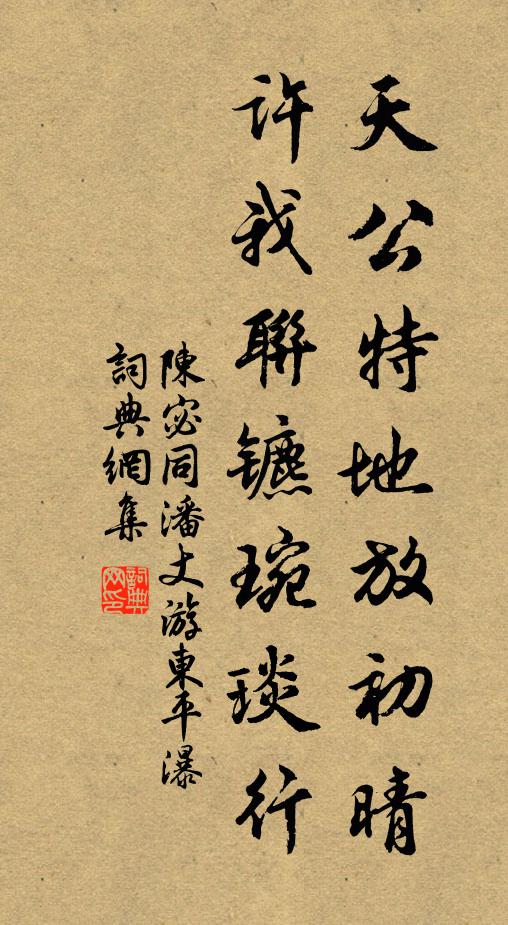 天公特地放初晴
許我聯镳琬琰行
陳宓同潘丈游東平瀑
詞典網集
詞典网印